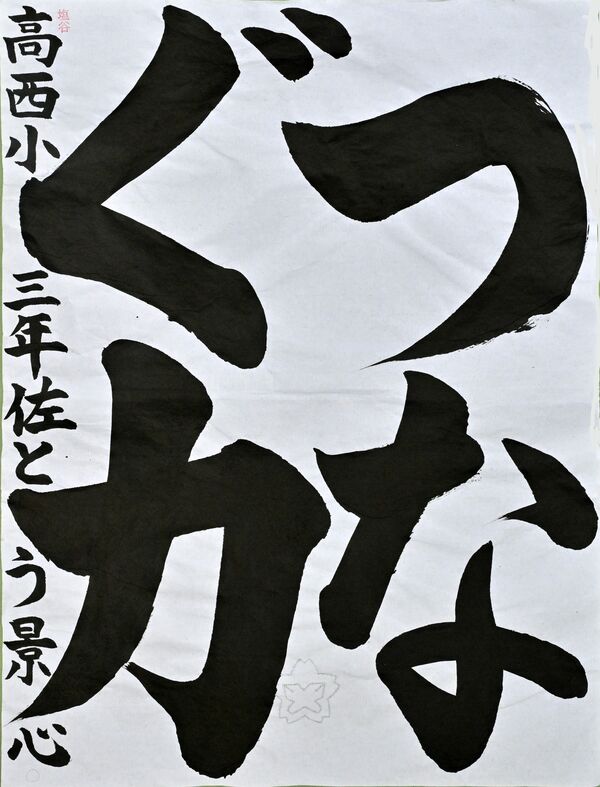 つな
ぐ力
高西小三年佐とう景心
塩谷